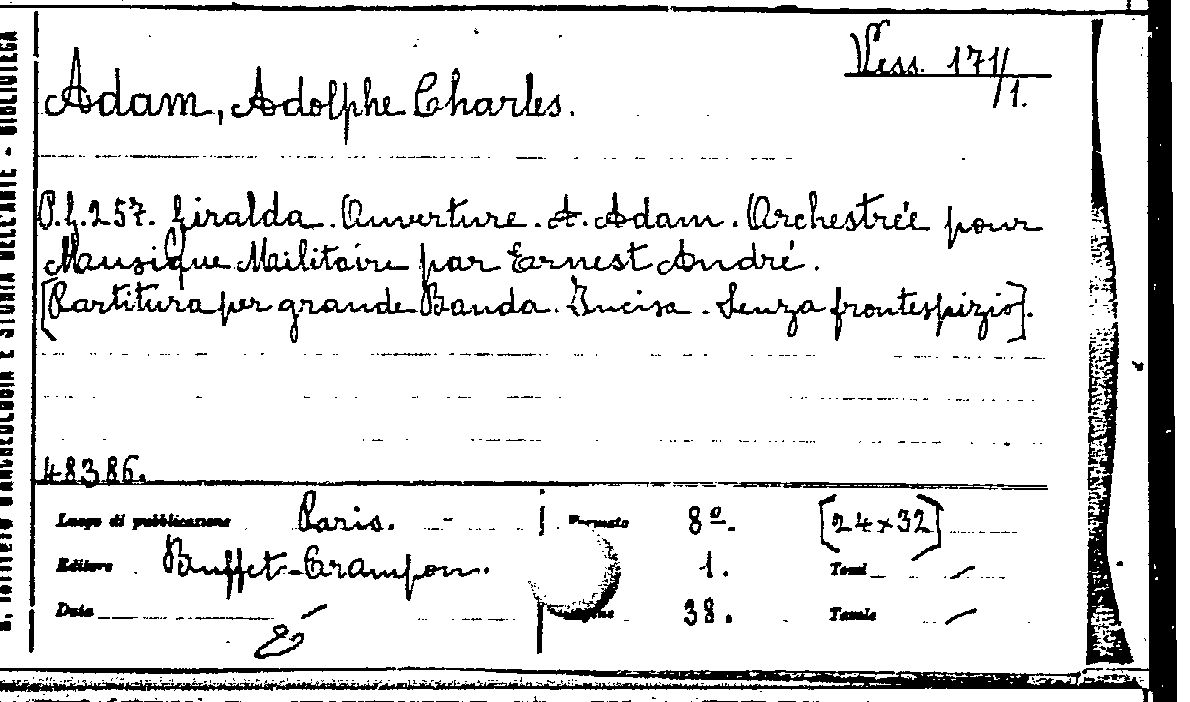 Vess. 171/1.
Adam, Adolphe Charles.
P.G.257. Giralda. Ouverture. A. Adam. Orchestrée pour
Musique Militaire par Ernest André.
[Partitura per grande Banda. Incisa. Senza frontespizio].
48386.
Luogo di pubblicazione Paris. - Formato 8º. [24×32]
Editore Buffet-Crampon. 1. Tomi /
Data / 38. Tavole /
ARCHEOLOGIA E STORIA DELL'ARTE - BIBLIOTECA